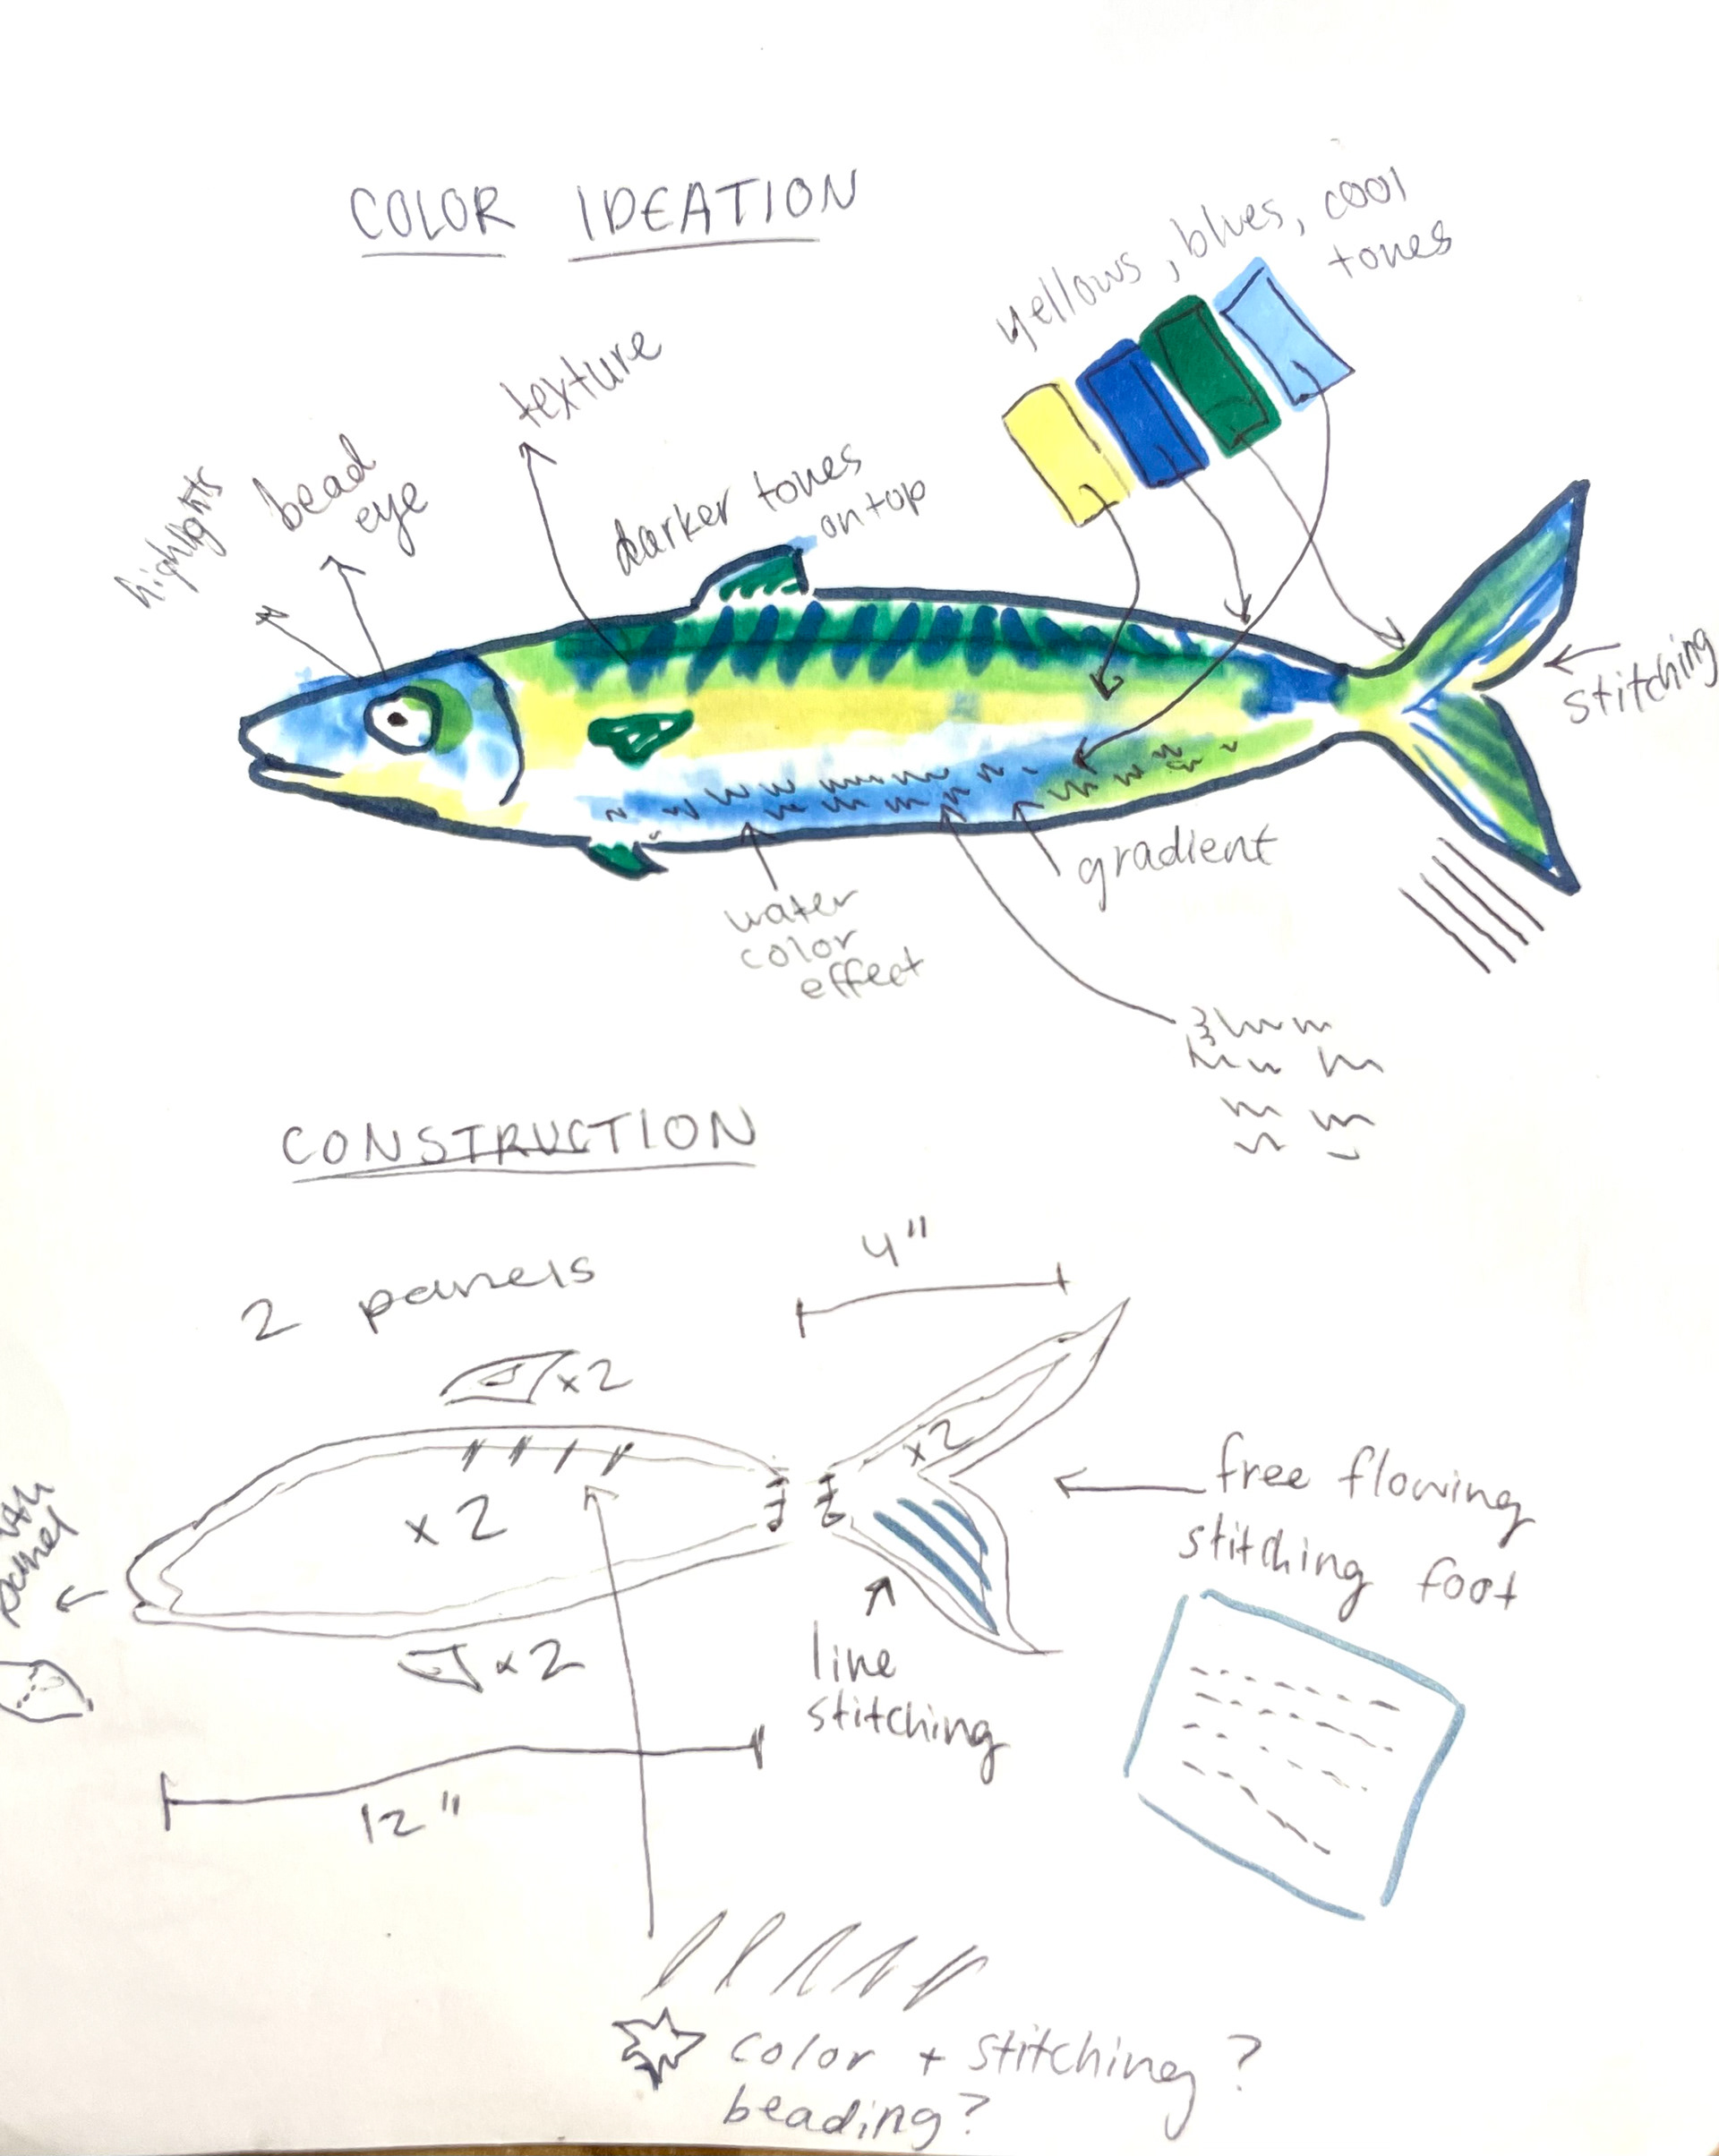 COLOR IDEATION
yellows, blues, cool
tones
texture
highlights
bead
eye
darker tones
on top
stitching
gradient
water
color
effect
CONSTRUCTION
4"
2 panels
x2
x2
x2
free flowing
stitching foot
panel
x2
line
stitching
12"
color + stitching?
beading?